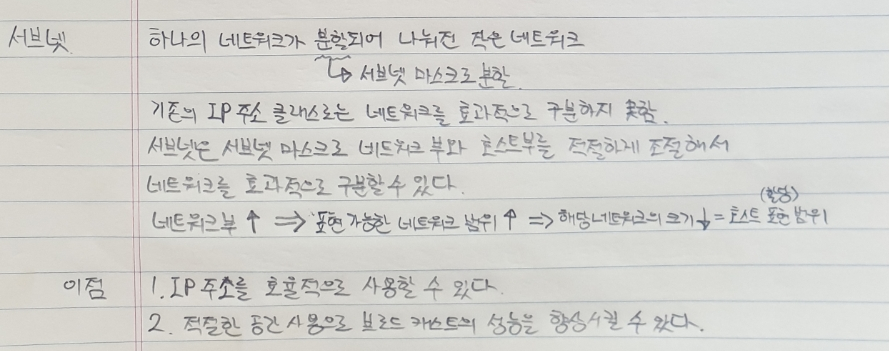 서브넷 하나의 네트워크가 분할되어 나눠진 작은 네트워크
↳ 서브넷 마스크로 분할.
기존의 IP 주소 클래스로는 네트워크를 효과적으로 구분하지 못함.
서브넷은 서브넷 마스크로 네트워크 부와 호스트부를 적절하게 조절해서
네트워크를 효과적으로 구분할 수 있다.
(할당)
네트워크부 ↑ ⇒ 표현 가능한 네트워크 범위 ↑ ⇒ 해당 네트워크의 크기 ↓ = 호스트 표현 범위
이점 1. IP 주소를 효율적으로 사용할 수 있다.
2. 적절한 공간 사용으로 브로드 캐스트의 성능을 향상시킬 수 있다.